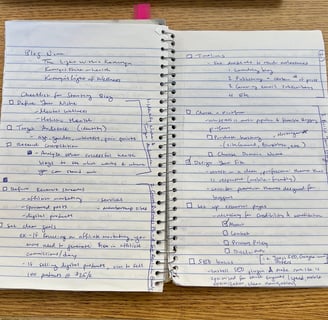 Blog Name
The Light within
Light of Wellness
Checklist for Starting Blog
Define Your Niche
- Mental Wellness
- Holistic Health
Target Audience (identity)
- age, gender, interests, pain points
Research Competition
Analyze other successful health
blogs to see what works & where
you can stand out
Define Revenue Streams
- affiliate marketing - services
- sponsored posts - membership sites
- digital products
Set clear goals
ex - if focusing on affiliate marketing, you
may need to generate in affiliate
commissions/day
- if selling digital products, aim to sell
100 products @ $25/ea
Timeline
- Set deadlines to reach milestones
1. Launching blog
2. Publishing a certain # of posts
3. Growing email subscribers
4. Etc.
Choose a Platform
- WordPress is most popular & flexible blogging
platform
Purchase hosting
Choose Domain Name
Design Your Site
- Select a clean, professional theme that
is responsive (mobile-friendly)
- consider premium themes designed for
bloggers
Set up essential pages
- necessary for credibility & communication
About
Contact
Privacy Policy
Disclosure
SEO basics
- Install SEO plugin & make sure site is
optimized for search engines